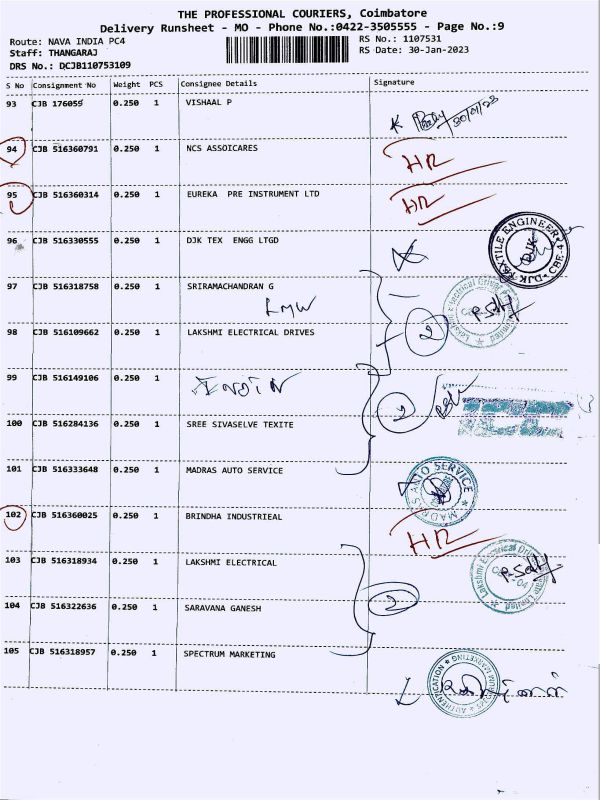 THE PROFESSIONAL COURIERS, Coimbatore
Delivery Runsheet - MO - Phone No.:0422-3505555 - Page No.:9
Route: NAVA INDIA PC4
RS No.: 1107531
Staff: THANGARAJ
RS Date: 30-Jan-2023
DRS No.: DCJB110753109
S No Consignment No Weight PCS Consignee Details Signature
93 CJB 176055 0.250 1 VISHAAL P
30/01/23
94 CJB 516360791 0.250 1 NCS ASSOICARES
HR
95 CJB 516360314 0.250 1 EUREKA PRE INSTRUMENT LTD
HR
96 CJB 516330555 0.250 1 DJK TEX ENGG LTGD
DJK TEXTILE ENGINEER CBE-4
97 CJB 516318758 0.250 1 SRIRAMACHANDRAN G
LMW
2
98 CJB 516109662 0.250 1 LAKSHMI ELECTRICAL DRIVES
99 CJB 516149106 0.250 1
2
100 CJB 516284136 0.250 1 SREE SIVASELVE TEXITE
101 CJB 516333648 0.250 1 MADRAS AUTO SERVICE
MADRAS AUTO SERVICE
102 CJB 516360025 0.250 1 BRINDHA INDUSTRIEAL
HR
103 CJB 516318934 0.250 1 LAKSHMI ELECTRICAL
2
104 CJB 516322636 0.250 1 SARAVANA GANESH
105 CJB 516318957 0.250 1 SPECTRUM MARKETING
SPECTRUM MARKETING AUTHENTICATION